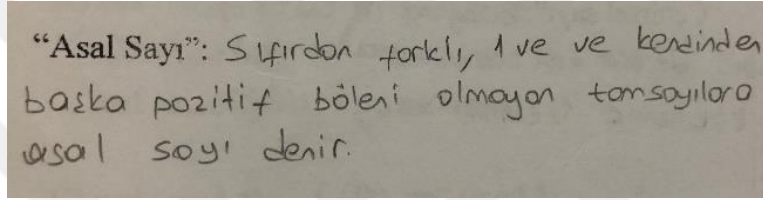 “Asal Sayı”: Sıfırdan farklı, 1 ve ve kendinden
başka pozitif böleni olmayan tamsayılara
asal sayı denir.